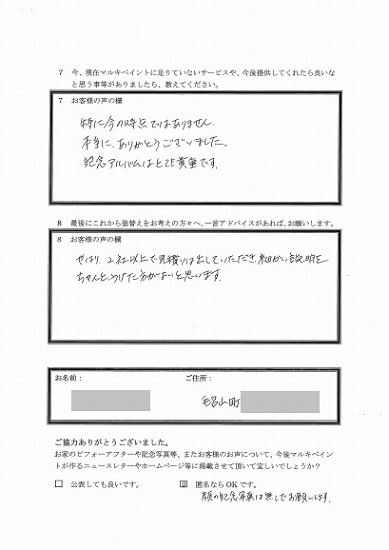 7 今、現在マルキペイントに足りていないサービスや、今後提供してくれたら良いな
と思う事等がありましたら、教えてください。
7 お客様の声の欄
特に今の時点ではありません。
本当に、ありがとうございました。
記念アルバムはとても貴重です。
8 最後にこれから塗替えをお考えの方々へ、一言アドバイスがあれば、お願いします。
8 お客様の声の欄
やはり、2社以上で見積りは出していただき、細かい説明を
ちゃんとうけた方がよいと思います。
お名前: ご住所:
毛呂山町
ご協力ありがとうございました。
お家のビフォーアフターや記念写真等、またお客様のお声について、今後マルキペイン
トが作るニュースレターやホームページ等に掲載させて頂いて宜しいでしょうか?
□ 公表しても良いです。 ☑ 匿名ならOKです。
顔の記念写真は無しでお願いします。